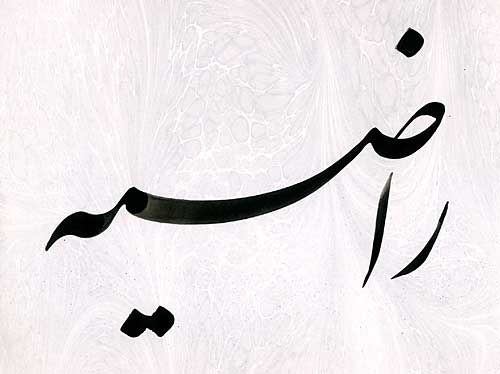 راضیه